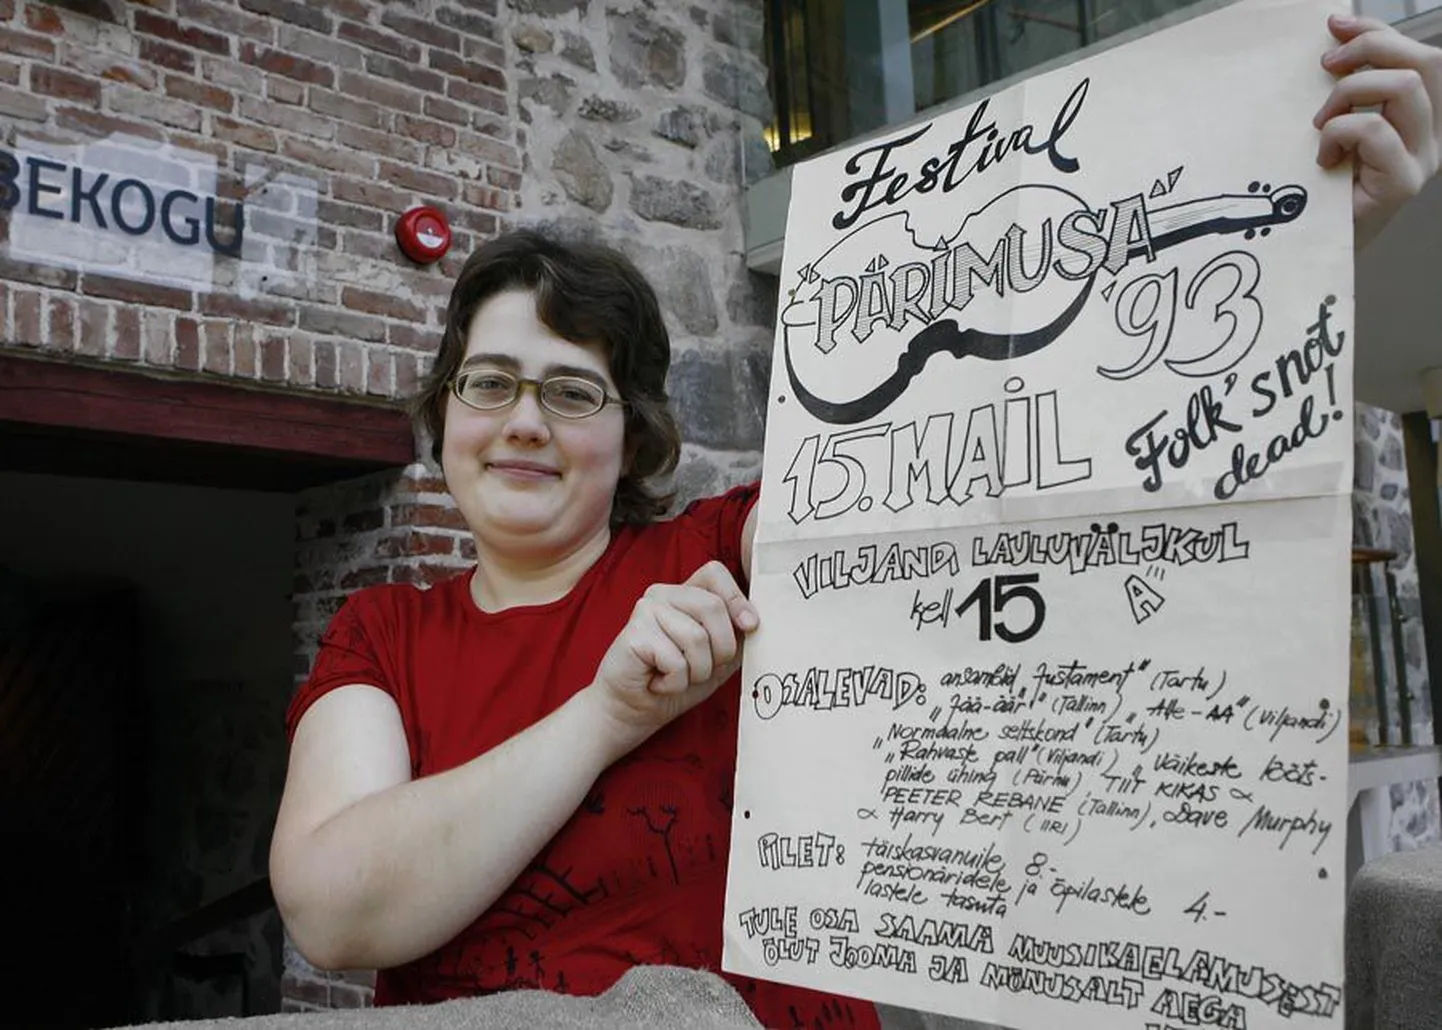 BEKOGU
Festival
"PÄRIMUSA"
'93
Folk's not
dead!
15. MAIL
VILJANDI LAULUVÄLJAKUL
kell 15
OSALEVAD: ansamblid „Justament" (Tartu)
„Jää-äär" (Tallinn), Alle-AA" (Viljandi)
„Normaalne seltskond" (Tartu)
„Rahvaste pall" (Viljandi) „Väikeste lõõts-
pillide ühing (Pärnu) TIIT KIKAS &
PEETER REBANE (Tallinn), Dave Murphy
& Harry Bert (IIRI)
PILET: täiskasvanuile 8.-
pensionäridele ja õpilastele 4.-
lastele tasuta
TULE OSA SAAMA MUUSIKAELAMUSEST
ÕLUT JOOMA JA MÕNUSALT AEGA